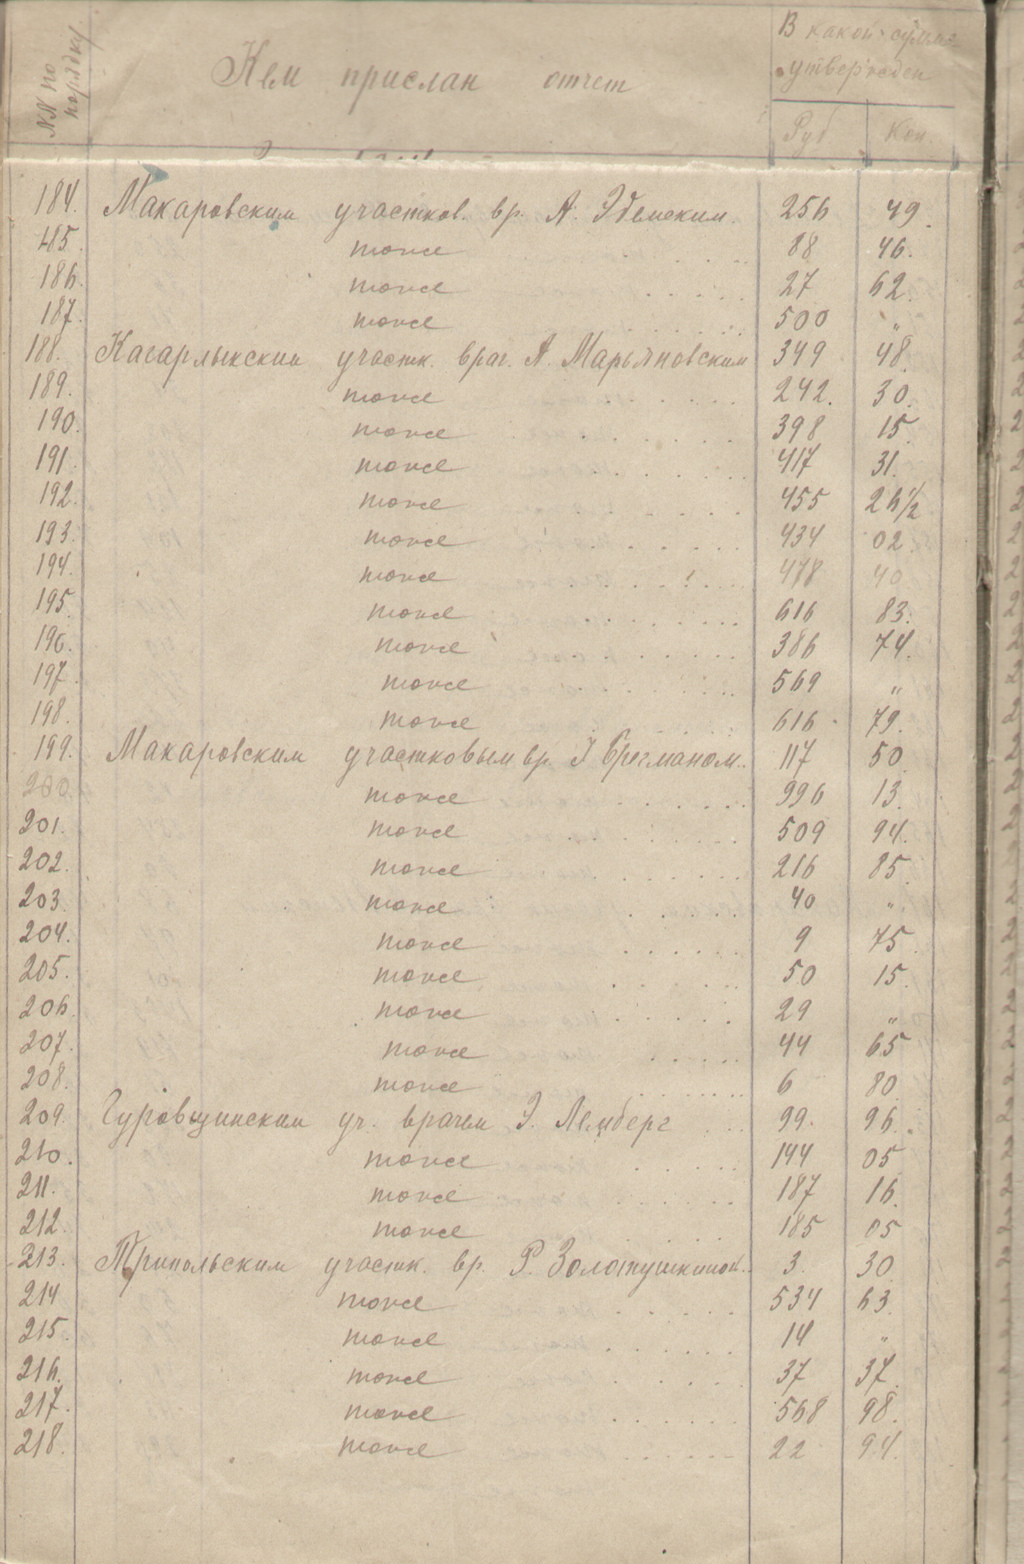 NN по порядку
Кем прислан отчет
В какой сумме утвержден
Руб Коп.
184. Макаровским участков. вр. А. 256 49.
185. тоже 88 46.
186. тоже 27 62.
187. тоже 500 "
188. Кагарлыкским участк. врач. А. Марьяновским 349 48.
189. тоже 242. 30.
190. тоже 398 15
191. тоже 417 31.
192. тоже 455 26½
193. тоже 434 02
194. тоже 478 40
195. тоже 616 83.
196. тоже 386 74.
197. тоже 569 "
198. тоже 616 79.
199. Макаровским участковым вр. І Брегманом 117 50
200. тоже 996 13.
201. тоже 509 94.
202. тоже 216 85.
203. тоже 40 "
204. тоже 9 75
205. тоже 50 15.
206. тоже 29 "
207. тоже 44 65
208. тоже 6 80
209. Гуровщинским уч. врачем Э. Лемберг 99. 96.
210. тоже 144 05
211. тоже 187 16.
212. тоже 185 05
213. Трипольским участк. вр. Р. Золотушкиной 3. 30
214 тоже 534 63
215. тоже 14 "
216. тоже 37 37.
217. тоже 568 98.
218. тоже 22 94.